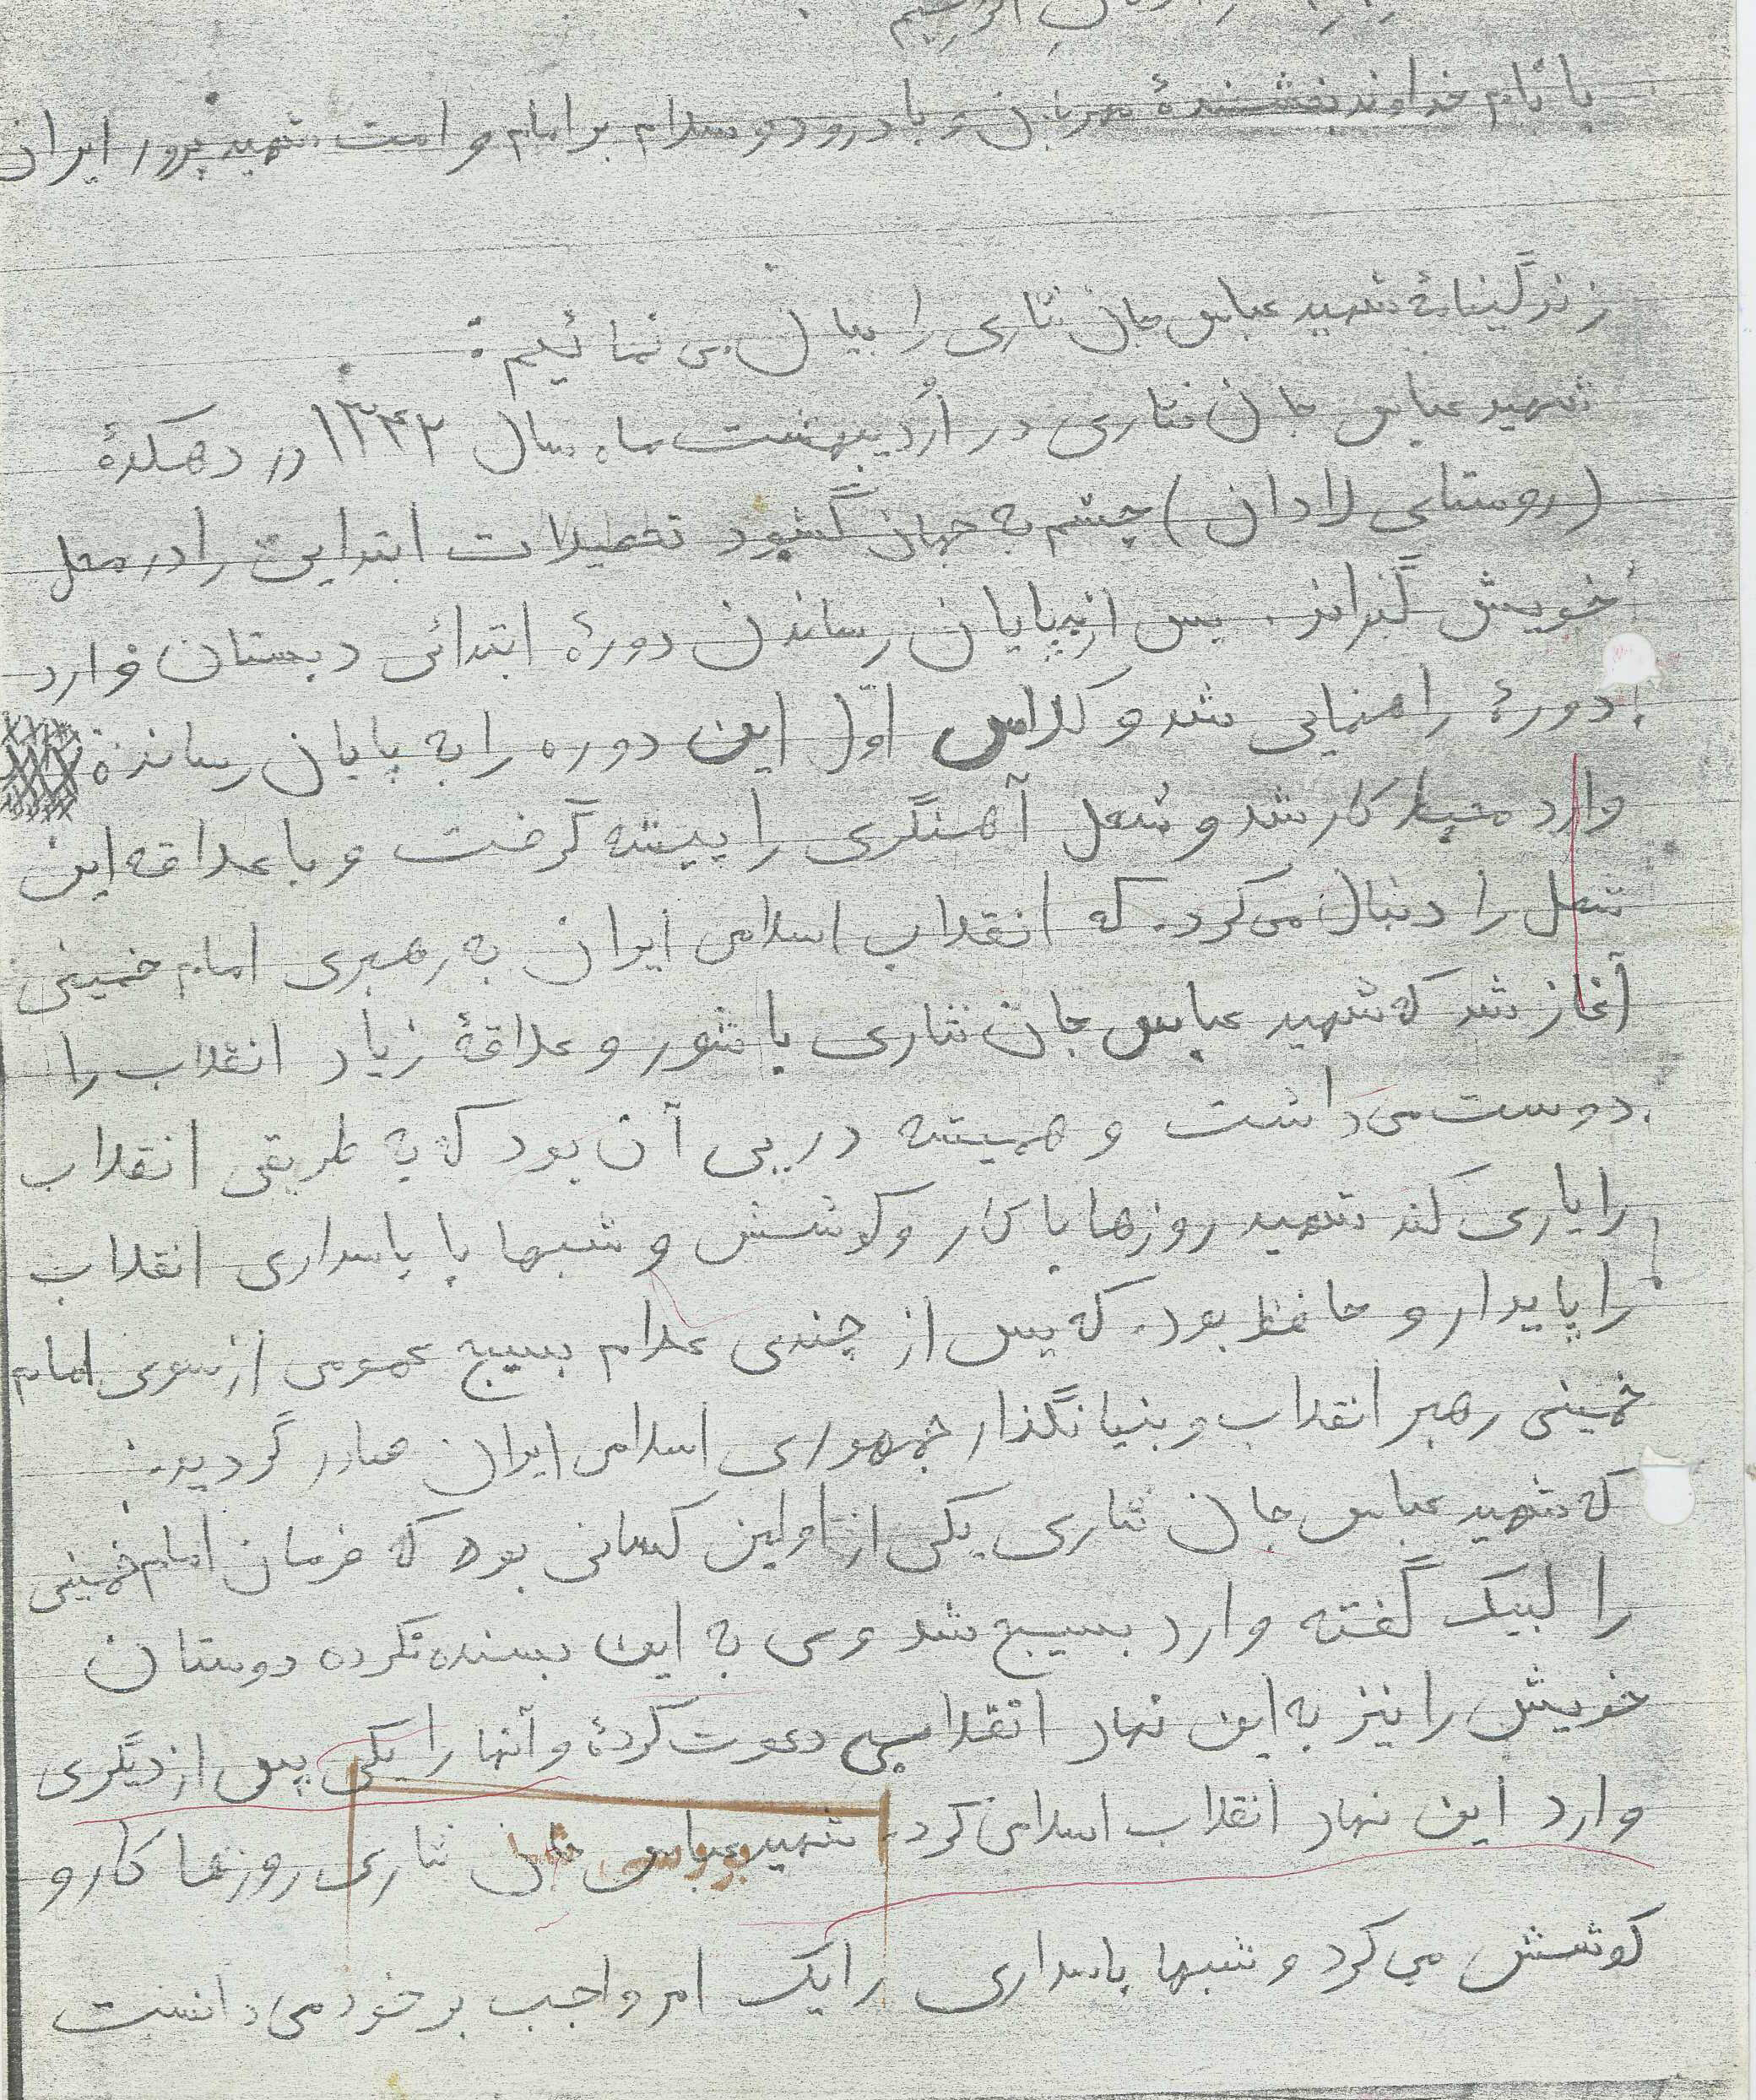 الرحیم
با نام خداوند بخشندهٔ مهربان و با درود و سلام بر امام و امت شهید پرور ایران
زندگینامهٔ شهید عباس جان نثاری را بیان می نمائیم:
شهید عباس جان نثاری در اُردیبهشت ماه سال ۱۳۴۲ در دهکدهٔ
(روستایی لادان) چشم به جهان گشود تحصیلات ابتدایی را در محل
خویش گذراند. پس از بپایان رساندن دورهٔ ابتدائی دبستان وارد
دورهٔ راهنمایی شد و کلاس اوّل این دوره را به پایان رسانده
وارد محیط کار شد و شغل آهنگری را پیشه گرفت و با علاقه این
شغل را دنبال می کرد. که انقلاب اسلامی ایران به رهبری امام خمینی
آغاز شد که شهید عباس جان نثاری با شور و علاقهٔ زیاد انقلاب را
دوست می داشت و همیشه در پی آن بود که به طریقی انقلاب
را یاری کند شهید روزها با کار و کوشش و شبها با پاسداری انقلاب
را پایدار و حافظ بود. که پس از چندی علام بسیج عمومی از سوی امام
خمینی رهبر انقلاب و بنیانگذار جمهوری اسلامی ایران صادر گردید.
که شهید عباس جان نثاری یکی از اولین کسانی بود که فرمان امام خمینی
را لبیک گفته وارد بسیج شد وی به این بسنده نکرده دوستان
خویش را نیز به این نهاد انقلابی دعوت کردهٔ و آنها را یکی پس از دیگری
وارد این نهاد انقلاب اسلامی کرد. شهید عباس جان نثاری روزها کار و
کوشش می کرد و شبها پاسداری را یک امر واجب بر خود می دانست